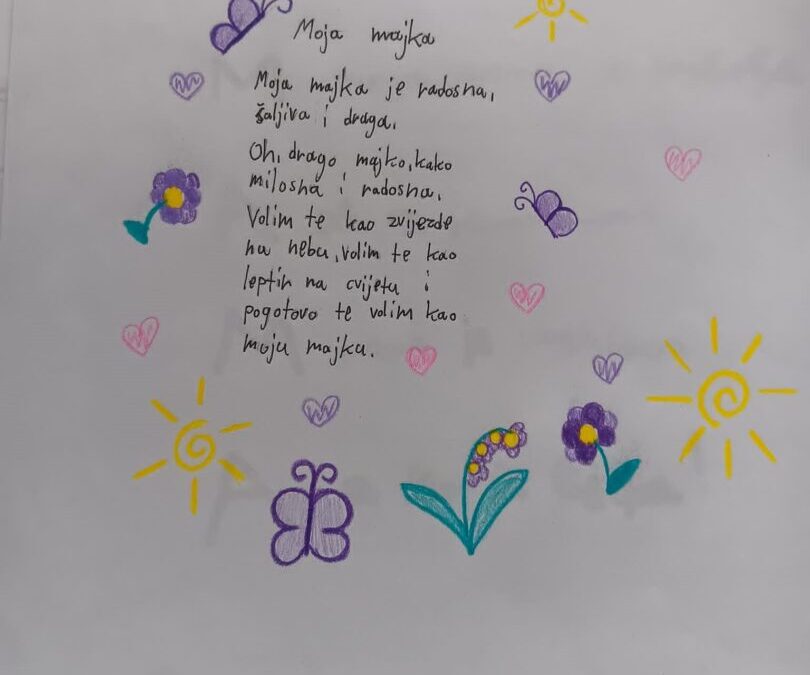 Moja majka
Moja majka je radosna,
šaljiva i draga.
Oh, drago majko, kako
milosna i radosna.
Volim te kao zvijezde
na nebu, volim te kao
leptir na cvijetu i
pogotovo te volim kao
moju majku.